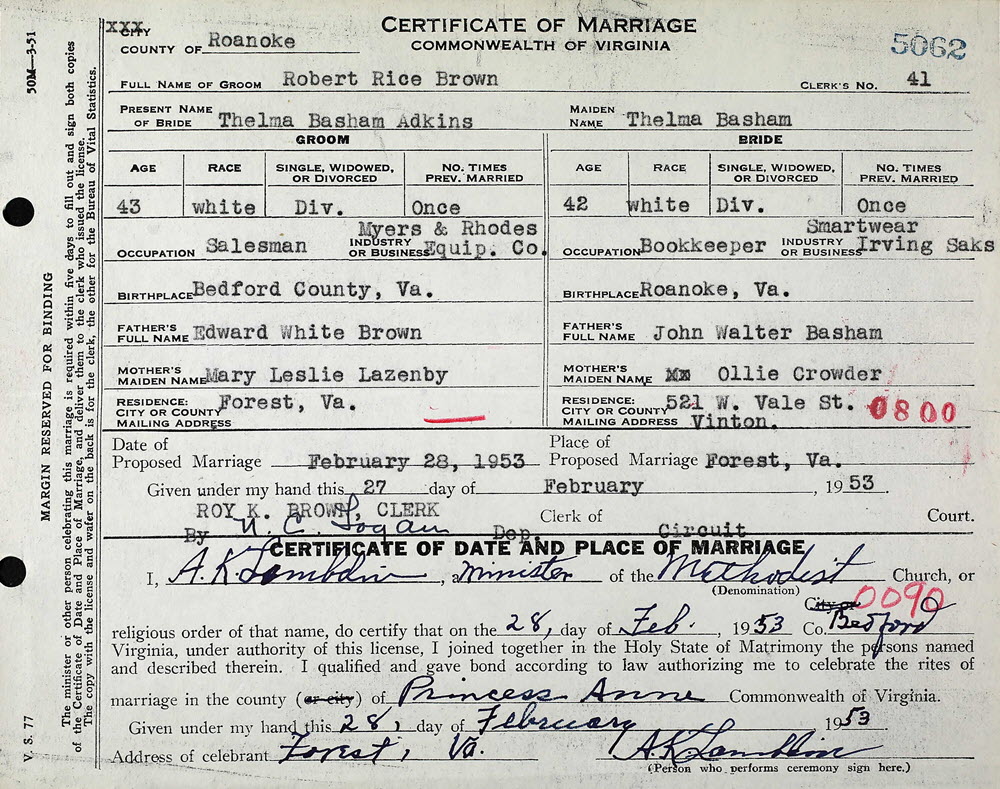 CERTIFICATE OF MARRIAGE
COMMONWEALTH OF VIRGINIA
XXX CITY
COUNTY OF Roanoke
5062
FULL NAME OF GROOM Robert Rice Brown CLERK'S NO. 41
PRESENT NAME OF BRIDE Thelma Basham Adkins MAIDEN NAME Thelma Basham
GROOM BRIDE
AGE RACE SINGLE, WIDOWED, OR DIVORCED NO. TIMES PREV. MARRIED AGE RACE SINGLE, WIDOWED, OR DIVORCED NO. TIMES PREV. MARRIED
43 white Div. Once 42 white Div. Once
OCCUPATION Salesman INDUSTRY OR BUSINESS Myers & Rhodes Equip. Co. OCCUPATION Bookkeeper INDUSTRY OR BUSINESS Smartwear Irving Saks
BIRTHPLACE Bedford County, Va. BIRTHPLACE Roanoke, Va.
FATHER'S FULL NAME Edward White Brown FATHER'S FULL NAME John Walter Basham
MOTHER'S MAIDEN NAME Mary Leslie Lazenby MOTHER'S MAIDEN NAME Ollie Crowder
RESIDENCE: CITY OR COUNTY MAILING ADDRESS Forest, Va. RESIDENCE: CITY OR COUNTY MAILING ADDRESS 521 W. Vale St. Vinton. 0800
Date of Proposed Marriage February 28, 1953 Place of Proposed Marriage Forest, Va.
Given under my hand this 27 day of February, 1953.
ROY K. BROWN, CLERK
By N. C. Logan Dep. Clerk of Circuit Court.
CERTIFICATE OF DATE AND PLACE OF MARRIAGE
I, A. K. Lambdin, a Minister of the Methodist Church, or
(Denomination)
City or 0090
religious order of that name, do certify that on the 28, day of Feb., 1953 Co. Bedford
Virginia, under authority of this license, I joined together in the Holy State of Matrimony the persons named
and described therein. I qualified and gave bond according to law authorizing me to celebrate the rites of
marriage in the county (or city) of Princess Anne Commonwealth of Virginia.
Given under my hand this 28, day of February 1953
Address of celebrant Forest, Va. A. K. Lambdin
(Person who performs ceremony sign here.)
50M—3-51
MARGIN RESERVED FOR BINDING
V. S. 77
The minister or other person celebrating this marriage is required within five days to fill out and sign both copies
of the Certificate of Date and Place of Marriage, and deliver them to the clerk who issued the license.
The copy with the license and wafer on the back is for the clerk, the other for the Bureau of Vital Statistics.